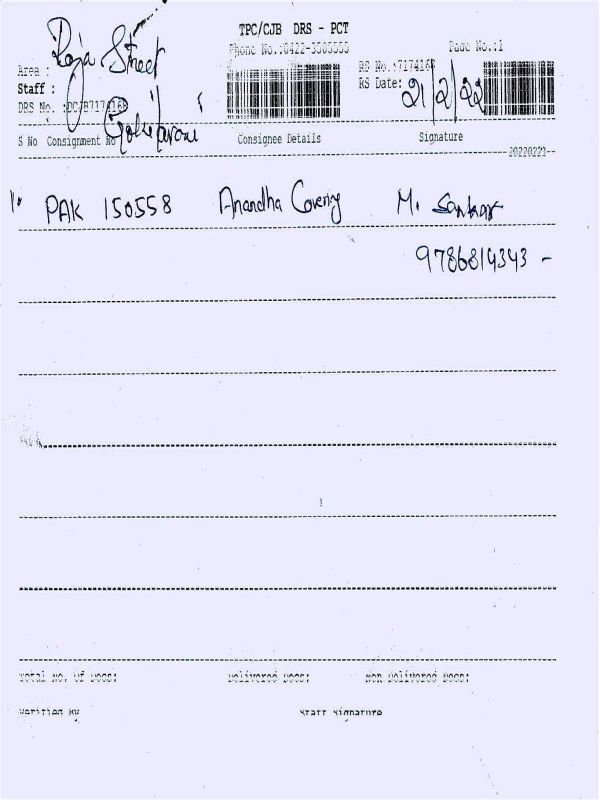 TPC/CJB DRS - PCT
Phone No.:0422-3505555 Page No.:1
Area : Raja Street
Staff : RS No.:7174168
RS Date: 21/2/22
DRS No. :DCJB7174168
S No Consignment No Consignee Details Signature
20220221
1. PAK 150558 Anandha Covering M. Sankar
9786814343 -
Total No. Of Docs: Delivered Docs: Non Delivered Docs:
Verified By Staff Signature